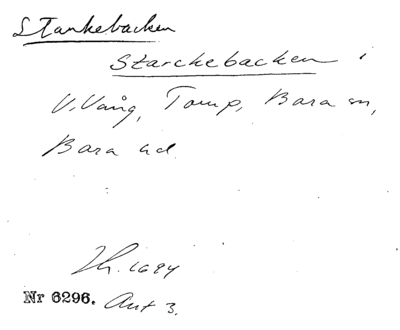 Stankebacken
Starckebacken i
V. Vång, Torup, Bara sn,
Bara hd.
Th. 1694
Nr 6296. Ant 3.